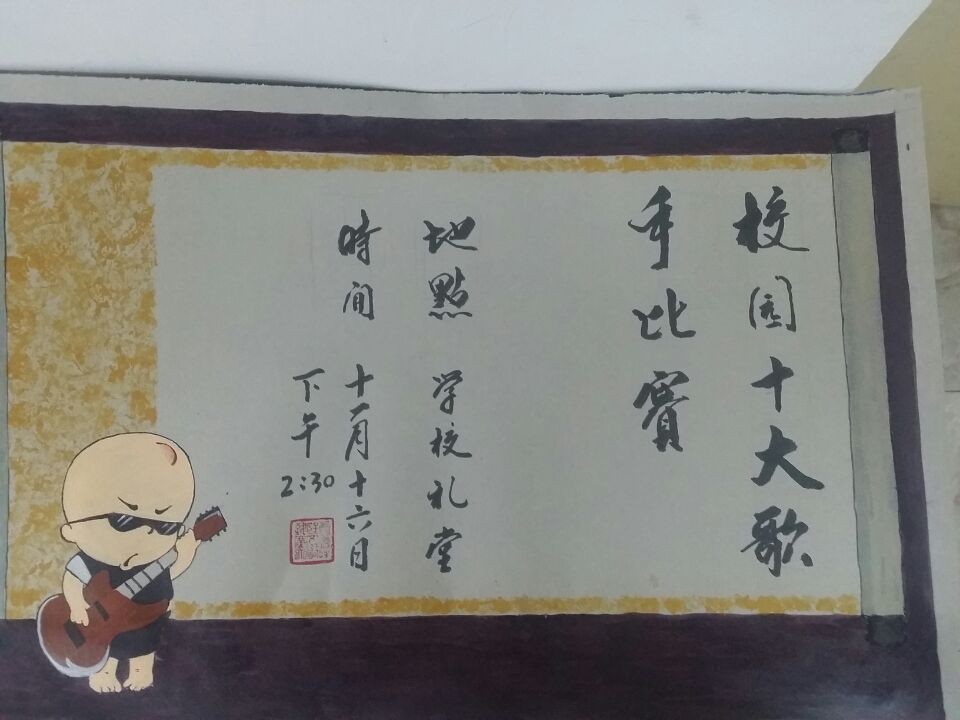 校园十大歌
手比賽
地點 学校礼堂
時间 十一月十六日
下午2:30